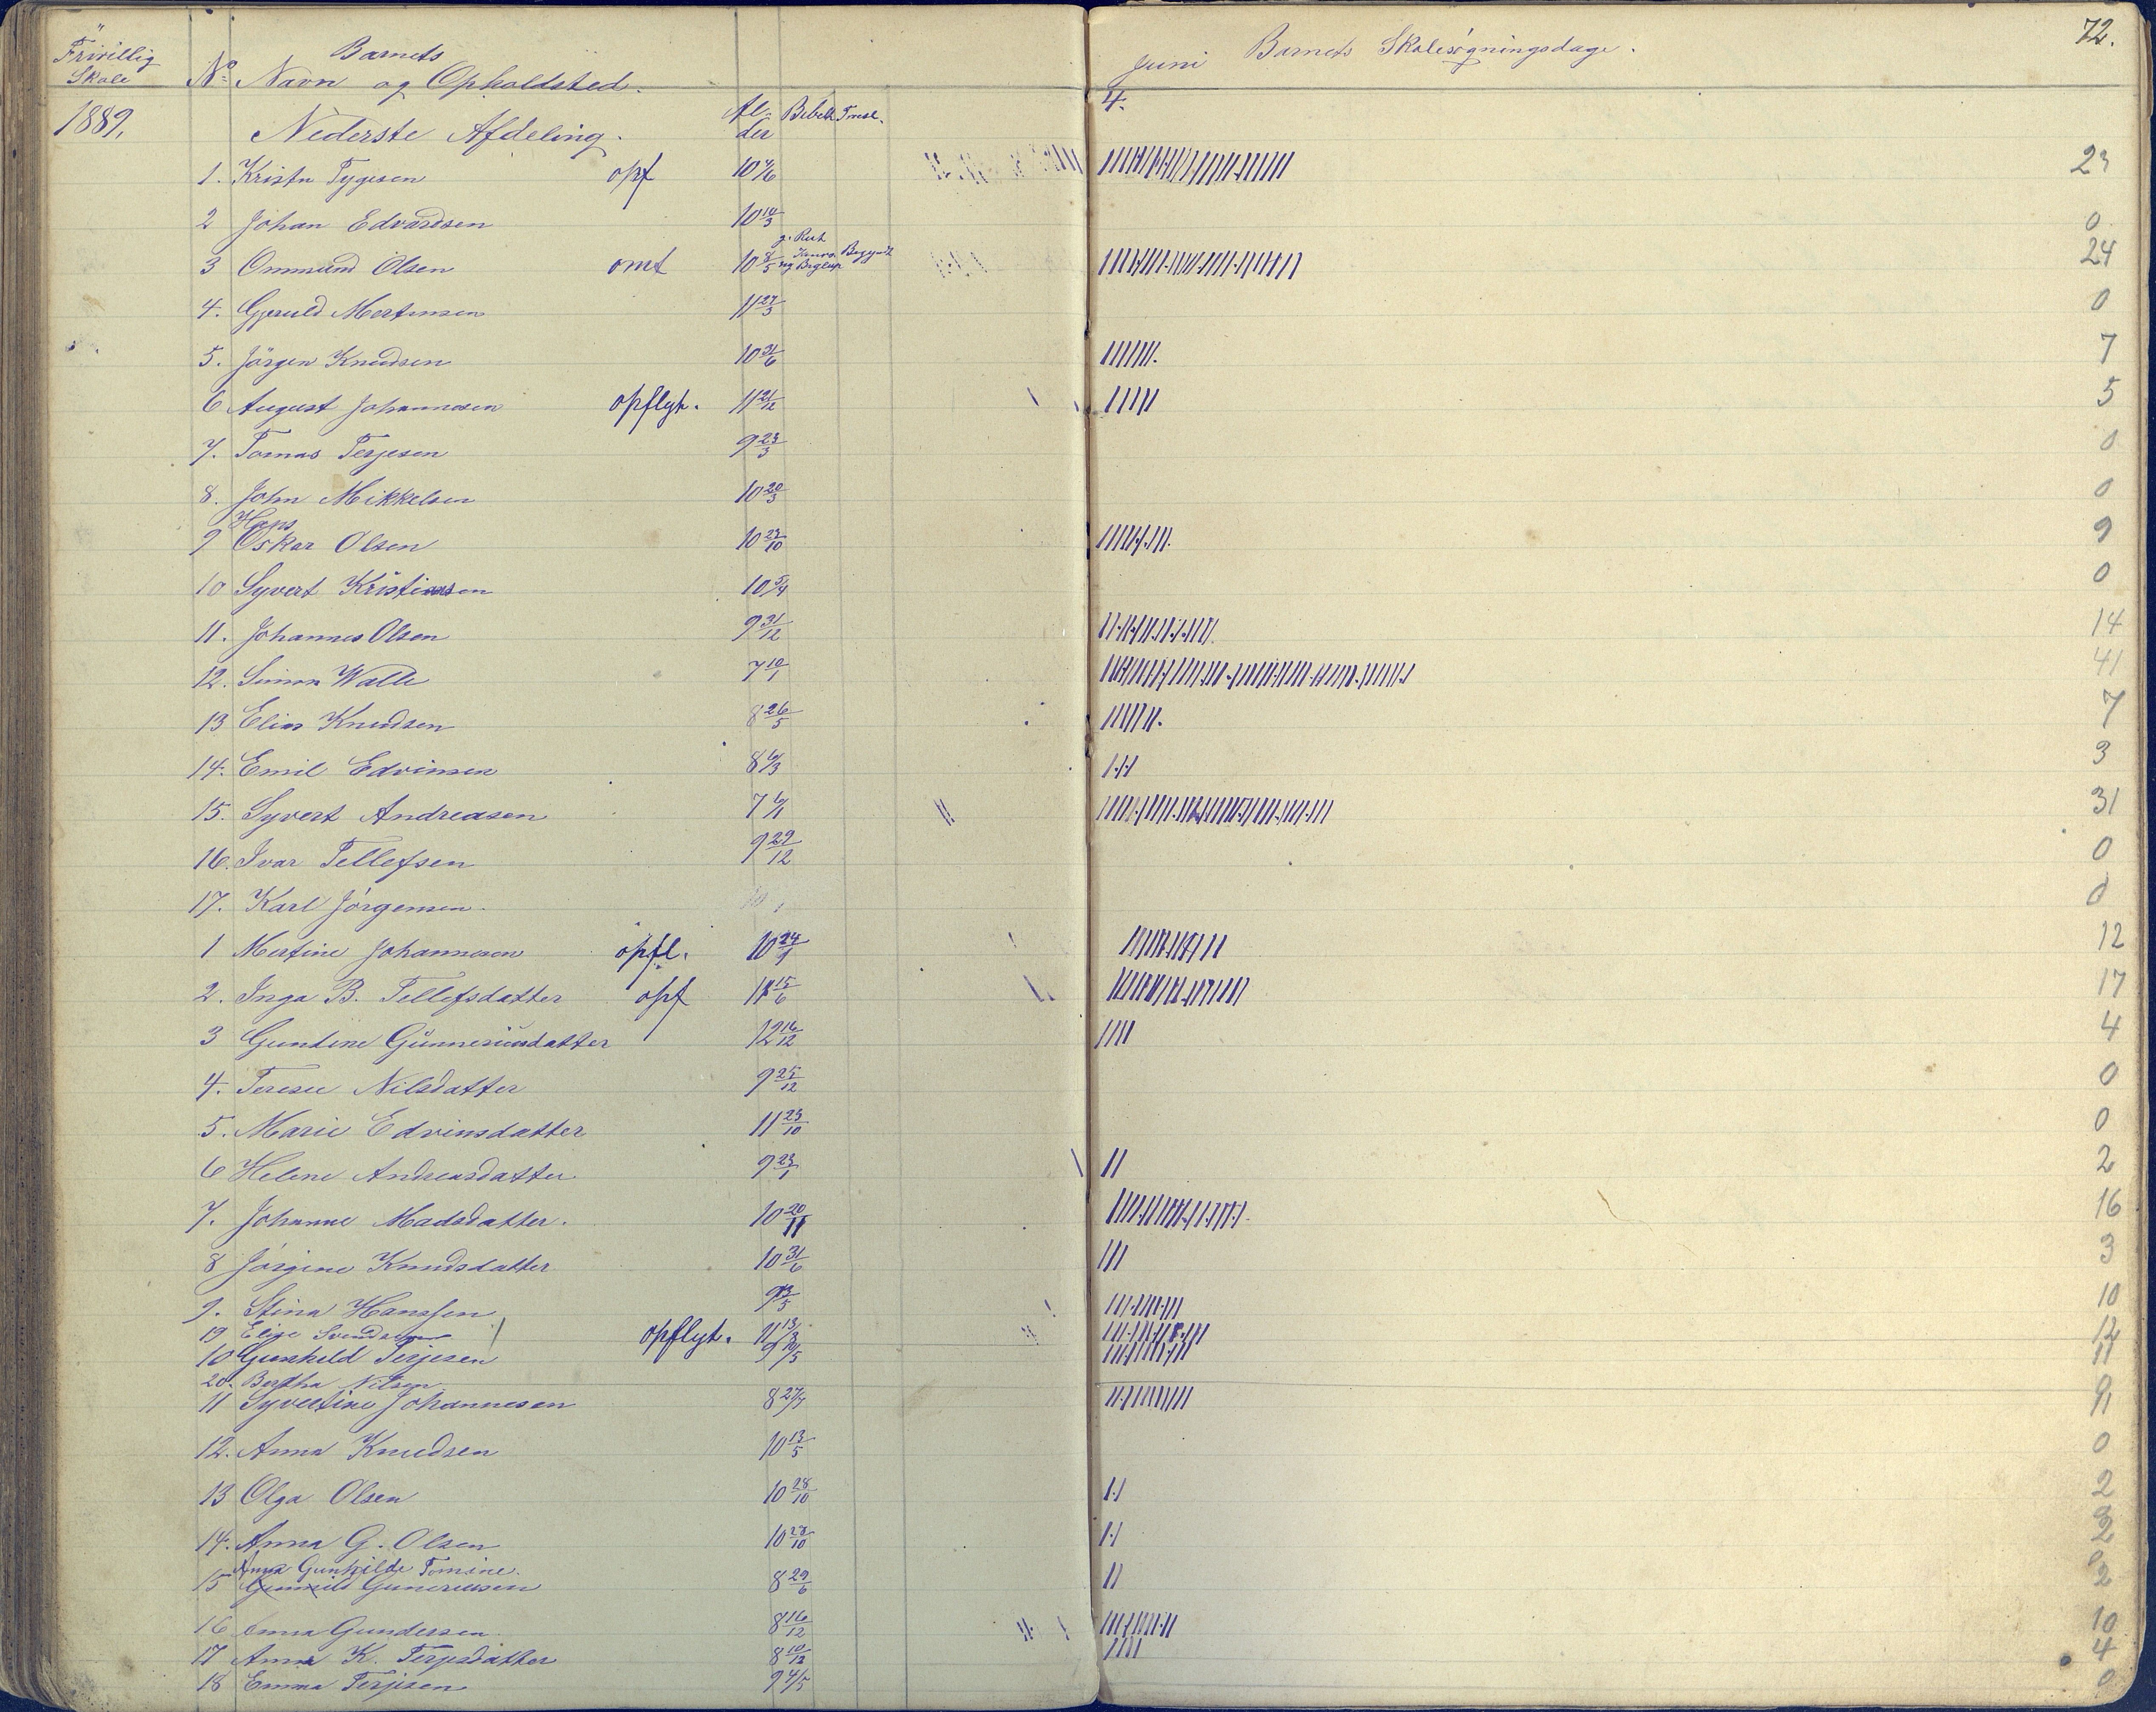 Frivillig Skole
Barnets
No Navn og Opholdsted.
Juni Barnets Skolesøgningsdage.
72.
1889.
Nederste Afdeling.
Al-der
4.
1. Kristn Tygesen opf 10 4/6 23
2 Johan Edvardsen 10 14/3 0
3 Ommund Olsen omt 10 8/5 Begyndt 24
4. Gjeruld Mortensen 11 27/3 0
5. Jörgen Knudsen 10 31/6 7
6 August Johannesen opflyt. 11 21/12 5
7. Tomas Terjesen 9 23/3 0
8. John Mikkelsen 10 20/3 0
Hans
9 Oskar Olsen 10 23/10 9
10 Syvert Kristiansen 10 5/4 0
11. Johannes Olsen 9 31/12 14
12. Simon Walle 7 10/1 41
13 Elias Knudsen 8 26/5 7
14. Emil Edvinsen 8 6/3 3
15. Syvert Andreasen 7 6/1 31
16. Ivar Tellefsen 9 29/12 0
17. Karl Jörgensen. 0
1 Mertine Johannesen opfl. 10 24/9 12
2. Inga B. Tellefsdatter opf 11 15/6 17
3 Gundine Gunneriusdatter 12 16/12 4
4. Terese Nilsdatter 9 25/12 0
5. Marie Edvinsdatter 11 23/10 0
6 Helene Andreasdatter 9 23/1 2
7. Johanne Madsdatter. 10 20/11 16
8 Jörgine Knudsdatter 10 31/6 3
9. Stina Hanssen 9 13/5 10
19 Elise Svendsen opflyt. 11 13/3 12
10 Gunhild Terjesen 11
20. Bertha Nilsen
11 Syvertine Johannesen 8 27/7
12. Anna Knudsen 10 13/5 0
13 Olga Olsen 10 28/10 2
14. Anna G. Olsen 10 28/10 2
Anna Gunhilde Tomine.
15 Gunhild Guneriussen 8 29/6 2
16 Anna Gundersen 8 16/12 10
17 Anna K. Terjesdatter 8 10/12 4
18 Emma Terjesen 9 4/5 0